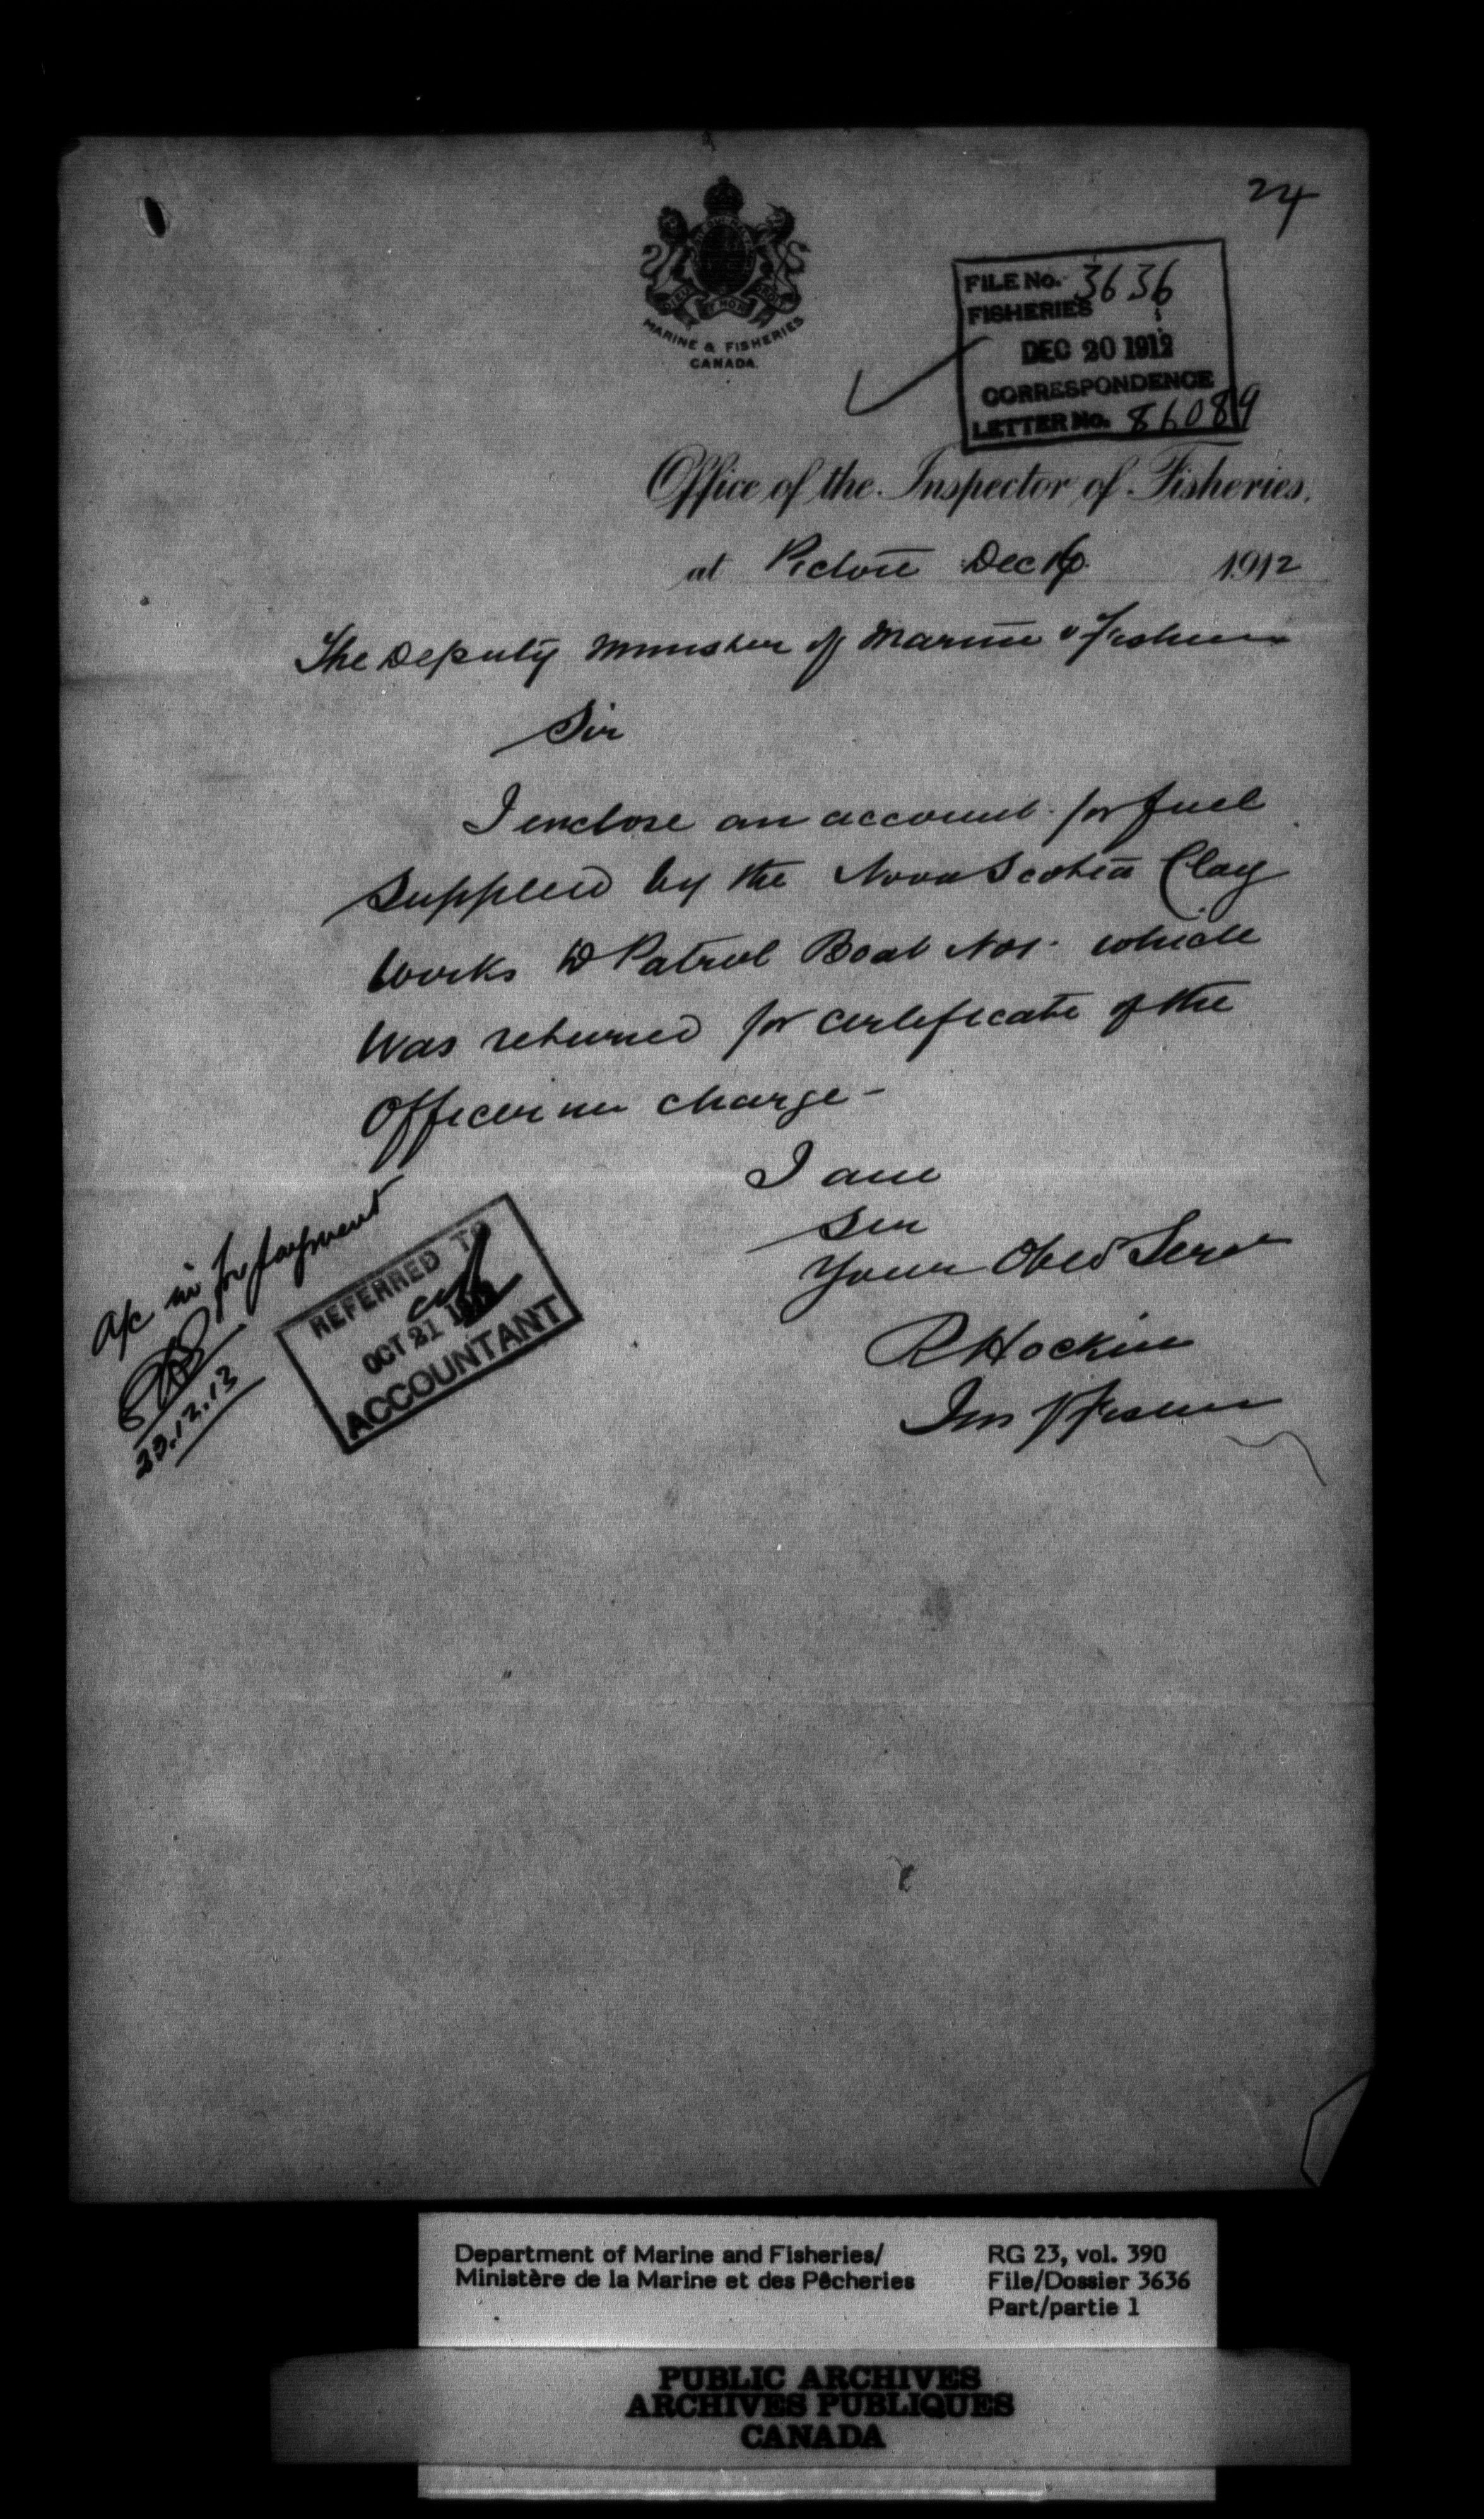 24
DIEU ET MON DROIT
MARINE & FISHERIES
CANADA.
FILE No. 3636
FISHERIES
DEC 20 1912
CORRESPONDENCE
LETTER No. 86089
Office of the Inspector of Fisheries,
at Pictou Dec 16 1912
The Deputy Minister of Marine & Fisheries
Sir
I enclose an account for fuel
supplied by the Nova Scotia Clay
Works to Patrol Boat No 1. which
was returned for certificate of the
Officer in charge -
I am
Sir
Your Obed Servt
R Hockin
Ins of Fisheries
a/c in for payment
23.12.13
REFERRED TO
OCT 21
ACCOUNTANT
Department of Marine and Fisheries/
Ministère de la Marine et des Pêcheries
RG 23, vol. 390
File/Dossier 3636
Part/partie 1
PUBLIC ARCHIVES
ARCHIVES PUBLIQUES
CANADA